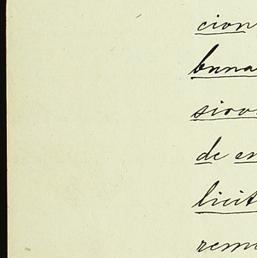 cion
buna
siov
de en
licit
remi